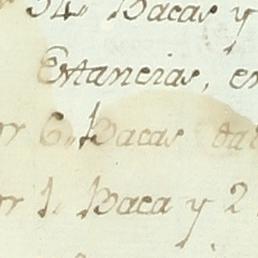 34. Bacas y
Estancias, en
6. Bacas
1. Baca y 2